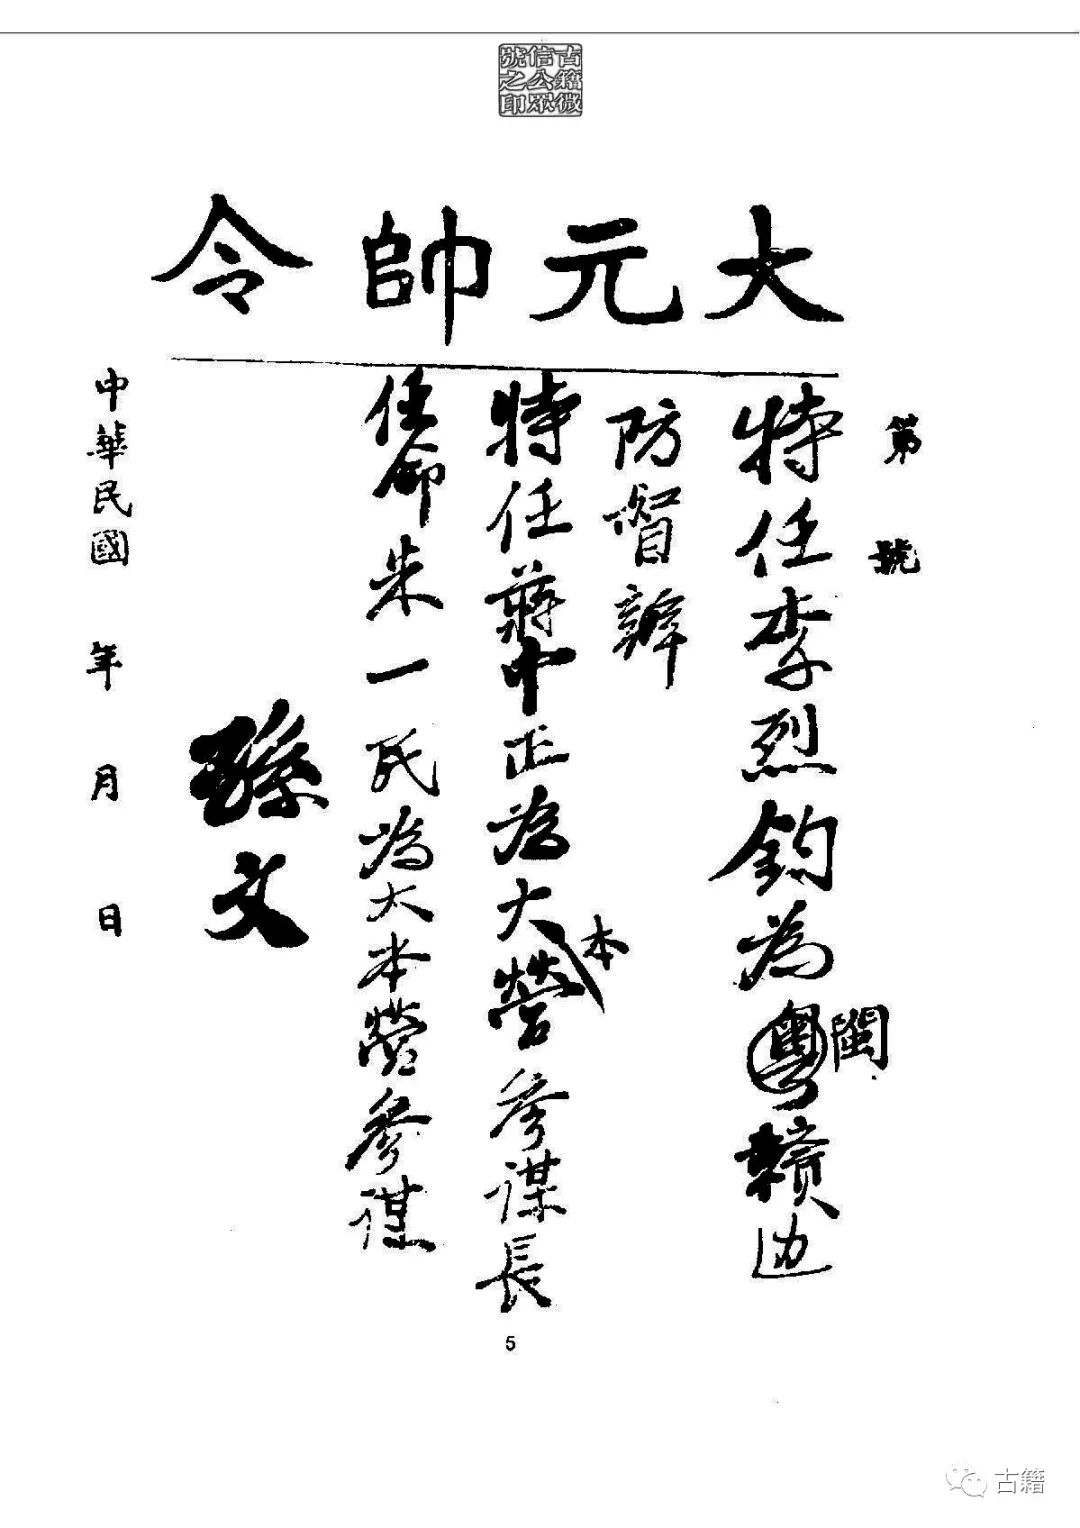 古籍微
信公眾
號之印
大元帥令
第　號
特任李烈鈞為粵閩贛边
防督辦
特任蔣中正為大本營參謀長
任命朱一民為大本營參謀
孫文
中華民國　年　月　日
5
古籍